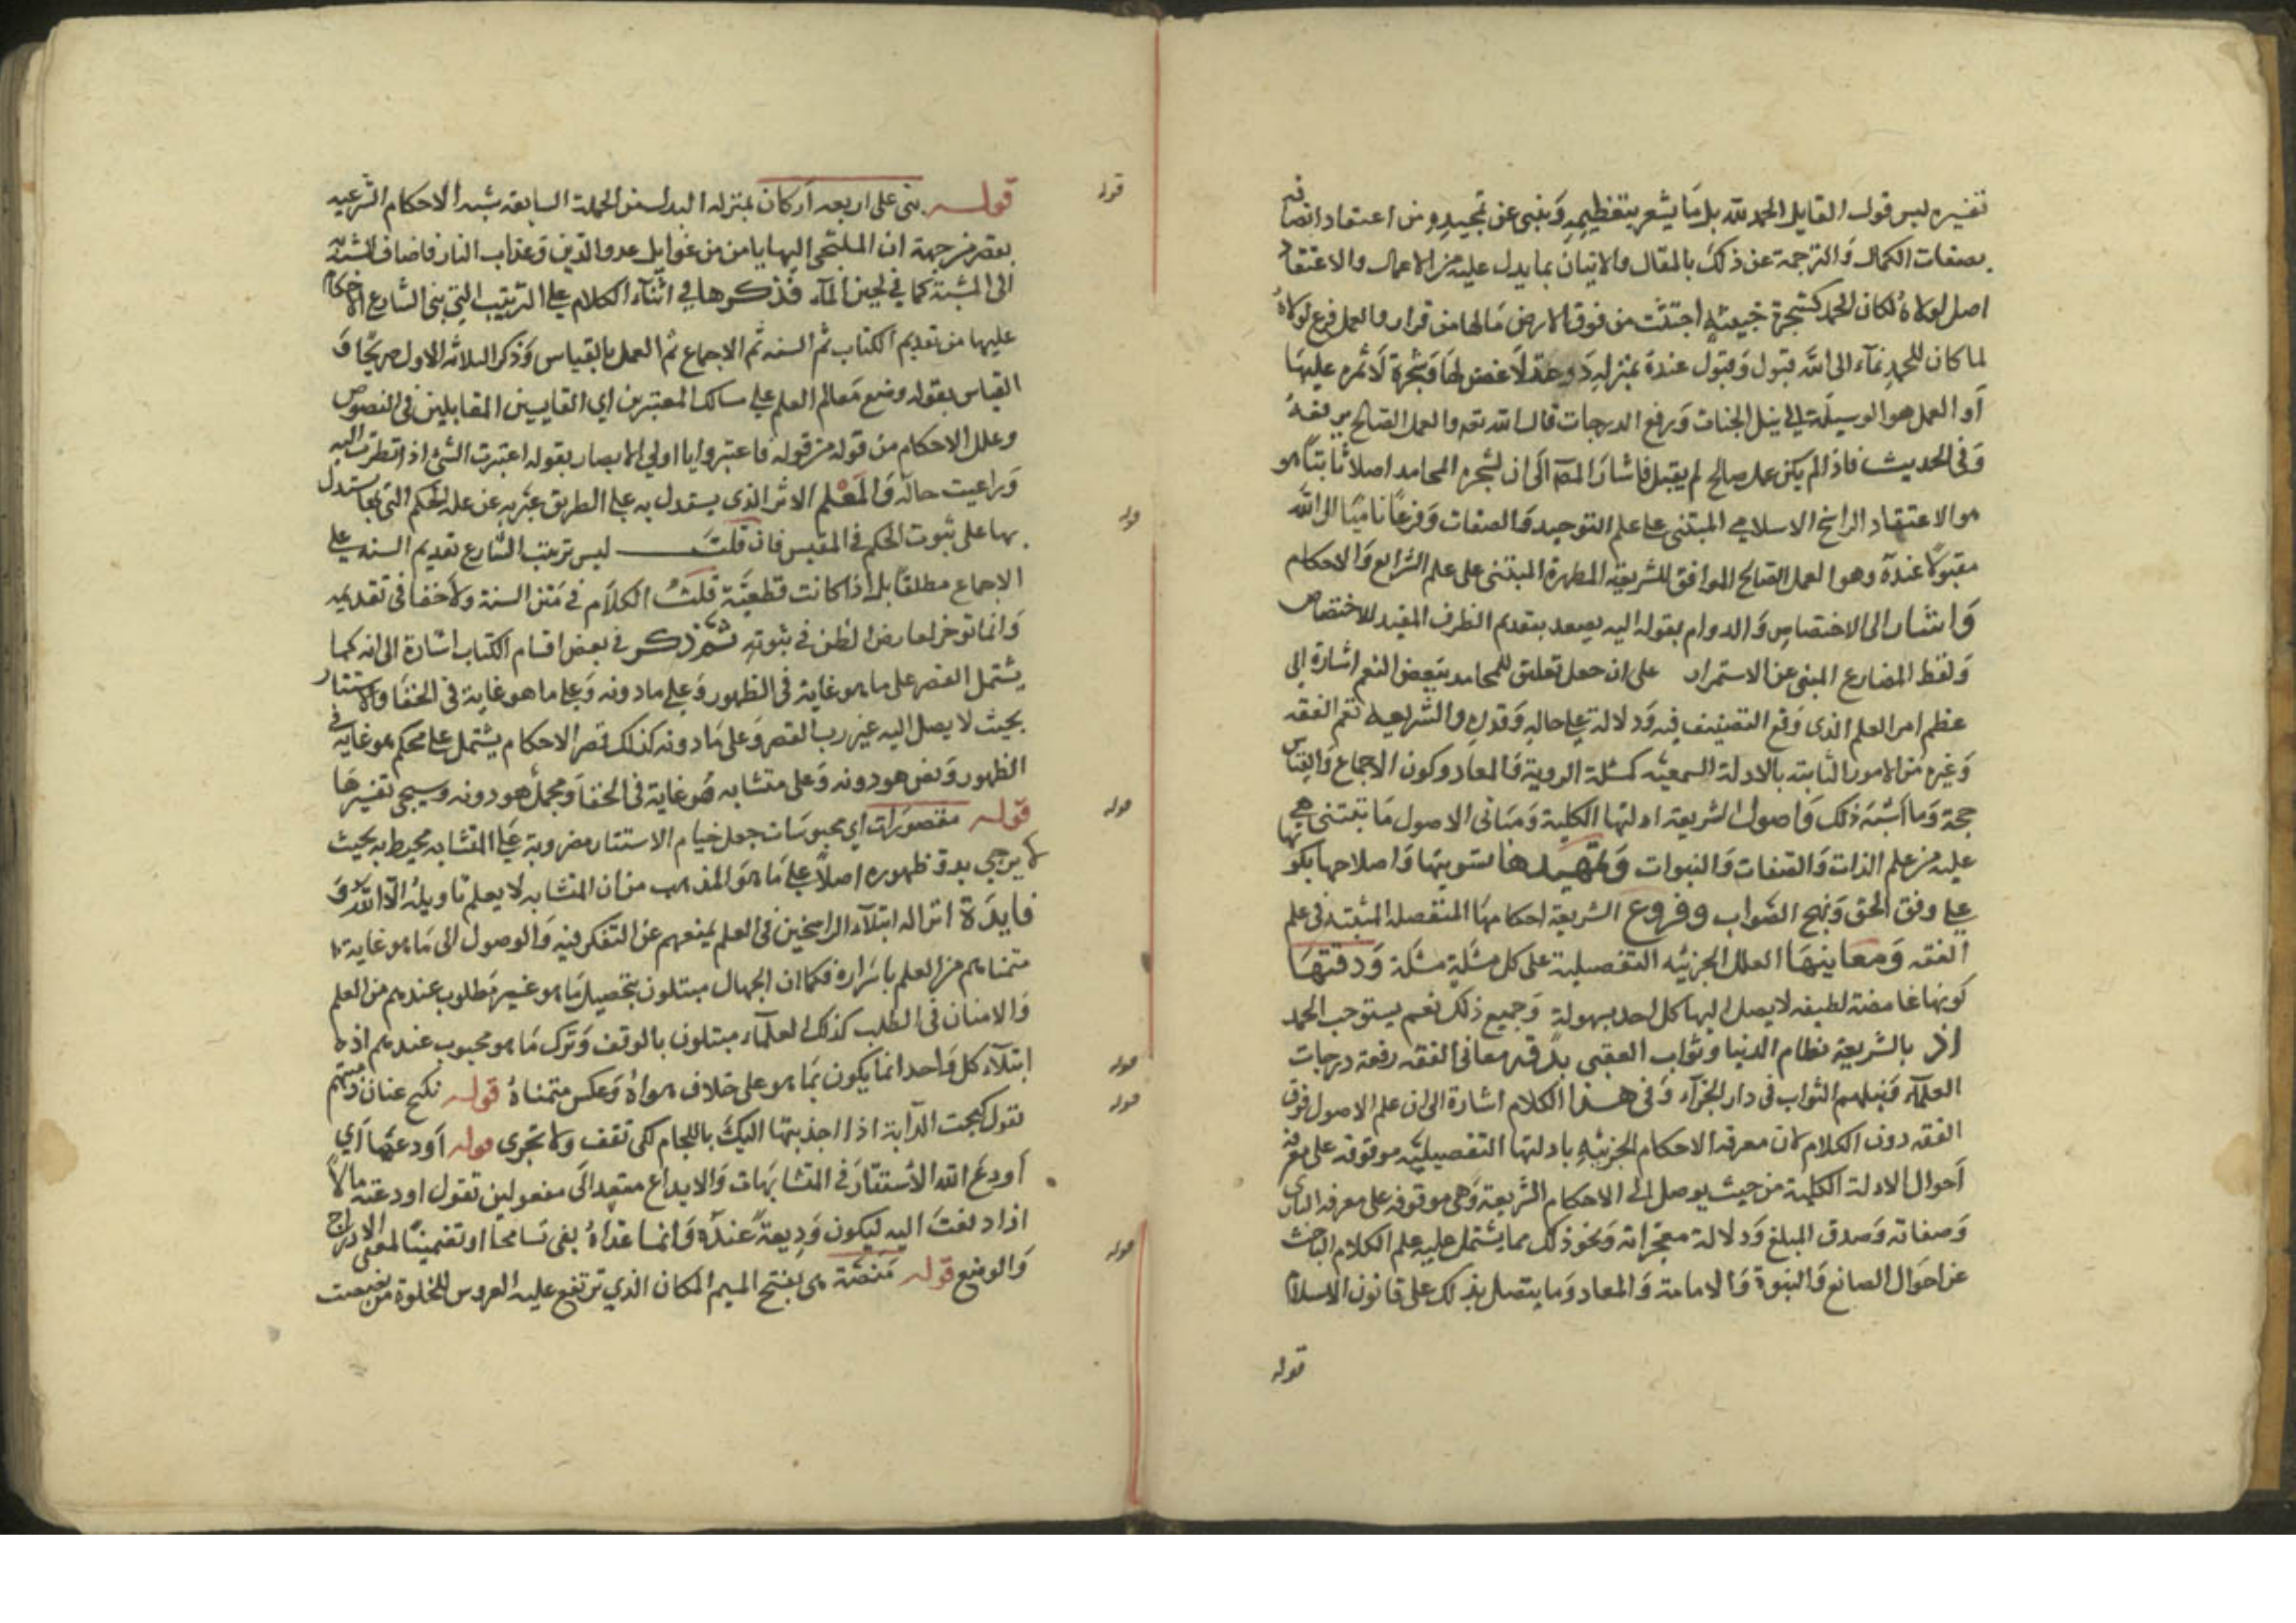 تفسيره ليس قول القايل الحمد لله بل ما يشعر بتعظيمه وينبى عن تمجيده من اعتقاد اتصافه
بصفات الكمال والترجمة عن ذلك بالمقال والاتيان بما يدل عليه من الاعمال والاعتقاد
اصل لولاه لكان الحمد كشجرة خبيثة اجتثت من فوق الارض مالها من قرار والعمل فرع لولاه
لما كان للحمد نماء الى الله قبول وقبول عنده بمنزلة دوحة لا غصن لها وشجرة لا ثمره عليها
أو العمل هو الوسيلة الى نيل الجنات ورفع الدرجات قال الله تعه والعمل الصالح يرفعه
وفى الحديث فاذ الم يكن عمل صالح لم يقبل فاشار المص الى ان لشجره المحامد اصلا ثابتا هو
هو الاعتقاد الراسخ الاسلامي المبتنى على علم التوحيد والصفات وفرعا ناميا الى الله
مقبولا عنده وهو العمل الصالح الموافق للشريعة المطهرة المبتنى على علم الشرايع والاحكام
واشار الى الاختصاص والدوام بقوله اليه يصعد بتقديم الظرف المفيد للاختصاص
ولفظ المضارع المنبى عن الاستمرار على ان جعل تعليق للمحامد ببعض النعم اشارة الى
عظم امر العلم الذى وقع التصنيف فيه ودلالة على حاله وقدره والشريعه تعم الفقه
وغيره من الامور الثابته بالادلة السمعيه كمسئلة الروية والمعاد وكون الاجماع والقياس
حجة وما اشبه ذلك واصول الشريعة ادلتها الكلية ومبانى الاصول ما تبتنى هي
عليه من علم الذات والصفات والنبوات وتمهيدها تسويتها واصلاحها بكونها
على وفق الحق ونهج الصواب وفروع الشريعة احكامها المفصله المثبتة فى علم
الفقه ومعاينها العلل الجزئيه التفصيلية على كل مسئلة مسئلة ودقتها
كونها غامضة لطيفه لا يصل اليها كل احد بسهولة وجميع ذلك نعم يستوجب الحمد
اذ بالشريعة نظام الدنيا وثواب العقبى بدقه معانى الفقه رفعة درجات
العلماء ونيلهم الثواب فى دار الجزآء وفى هذا الكلام اشارة الى ان علم الاصول فوق
الفقه دون الكلام لان معرفه الاحكام الجزئيه بادلتها التفصيليه موقوفه على معرفة
احوال الادلة الكلية من حيث يوصل الى الاحكام الشريعة وهى موقوفه على معرفه البارى
وصفاته وصدق المبلغ ودلالة معجزاته ونحو ذلك مما يشتمل عليه علم الكلام الباحث
عن احوال الصانع والنبوة والامامة والمعاد وما يتصل بذلك على قانون الاسلام
قوله
قوله بنى على اربعه أركان بمنزله البدل من الجملة السابقه شبه الاحكام الشرعيه
بقصر من جهة ان الملتجى اليها يامن من غوايل عدو الدين وعذاب النار فاضاف المشبه به
الى المشبه كما فى لجين المآء فذكرها في اثنآء الكلام على الترتيب التي بنى الشارع الاحكام
عليها من تقديم الكتاب ثم السنه ثم الاجماع ثم العمل بالقياس وذكر الثلاثه الاول صريحا و
القياس بقوله وضع معالم العلم على مسالك المعتبرين اي القايسين المقابلين فى النصوص
وعلل الاحكام من قوله من قوله فاعتبروا يا اولي الابصار بقوله اعتبرت الشئ اذا نظرت اليه
وراعيت حاله والمعلم الاثر الذى يستدل به على الطريق عبر به عن علة الحكم التى بها يستدل
بها على ثبوت الحكم فى المقيس فان قلت ليس ترتيب الشارع تقديم السنه على
الاجماع مطلقا بل اذا كانت قطعية قلت الكلام فى متن السنة ولا خفا فى تقديمه
وانما توخر لعارض الظن في ثبوته ثم ذكر في بعض اقسام الكتاب اشارة الى انه كما
يشتمل القصر على ما هو غاية فى الظهور وعلى مادونه وعلى ما هو غاية فى الخفا والاستتار
بحيث لا يصل اليه غير رب القصر وعلى مادونه كذلك قصر الاحكام يشتمل على محكم هو غاية فى
الظهور ونص هو دونه وعلى متشابه هو غاية فى الخفا ومجمل هو دونه وسيجى تفسيرها
قوله مقصورات اي محبوسات جعل خيام الاستتار مضروبة على المتشابه محيط به بحيث
لا يرجى بدو ظهوره اصلا على ما هو المذهب من ان المتشابه لا يعلم تاويله الا الله و
فايدة انزاله ابتلآء الراسخين فى العلم بمنعهم عن التفكر فيه والوصول الى ما هو غاية
متمناهم من العلم باسراره فكما ان الجهال مبتلون بتحصيل ما هو غير مطلوب عندهم من العلم
والامعان فى الطلب كذلك العلمآء مبتلون بالوقف وترك ما هو محبوب عندهم اذ
ابتلآء كل واحد انما يكون بما هو على خلاف هواه وعكس متمناه قوله نكبح عنان ذهنهم
تقول كبحت الدآبة اذا جذبتها اليك باللجام لكى تقف ولا تجرى قوله أودعها أي
أودع الله الاستتار فى المتشابهات والايداع متعد الى مفعولين تقول اودعته مالا
اذا دفعت اليه ليكون وديعة عنده وانما عداه بفى تسامحا او تضمينا لمعنى الادراج
والوضع قوله منصة هى بفتح الميم المكان الذي ترتفع عليه العروس للخلوة من نصصت
قوله
قوله
قوله
قوله
قوله
قوله